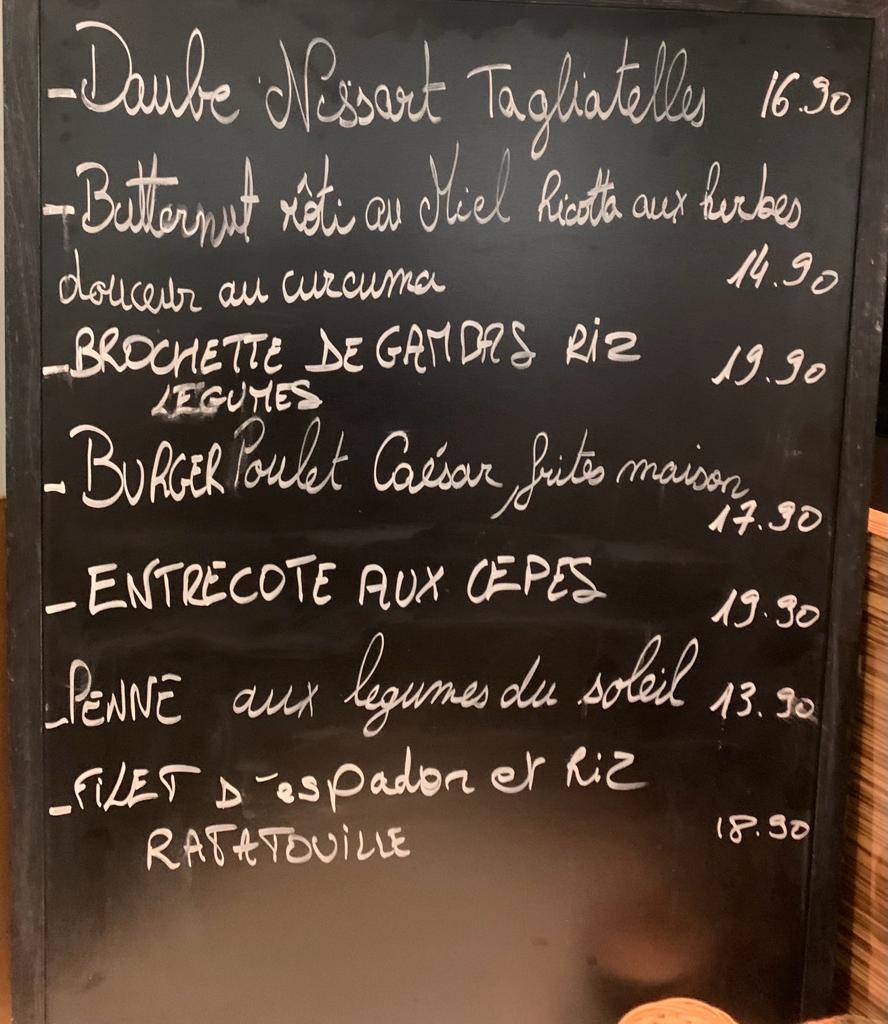 - Daube Nissart Tagliatelles 16.90
- Butternut rôti au Miel Ricotta aux herbes
douceur au curcuma 14.90
- BROCHETTE DE GAMBAS RiZ 19.90
LEGUMES
- BURGER Poulet Caésar, frites maison
17.90
- ENTRECOTE AUX CEPES 19.90
- PENNE aux legumes du soleil 13.90
- FILET D'espadon et RiZ
RATATOUiLLE 18.90